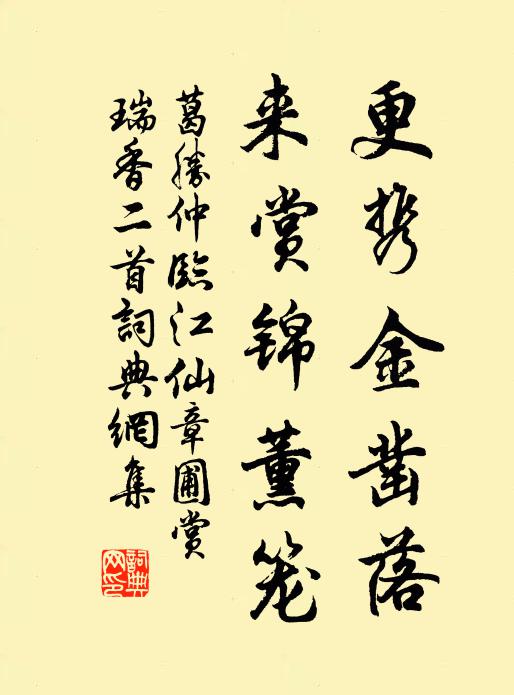 更携金凿落
来赏锦薰笼
葛勝仲臨江仙章圃赏
瑞香二首詞典網集
詞典网印